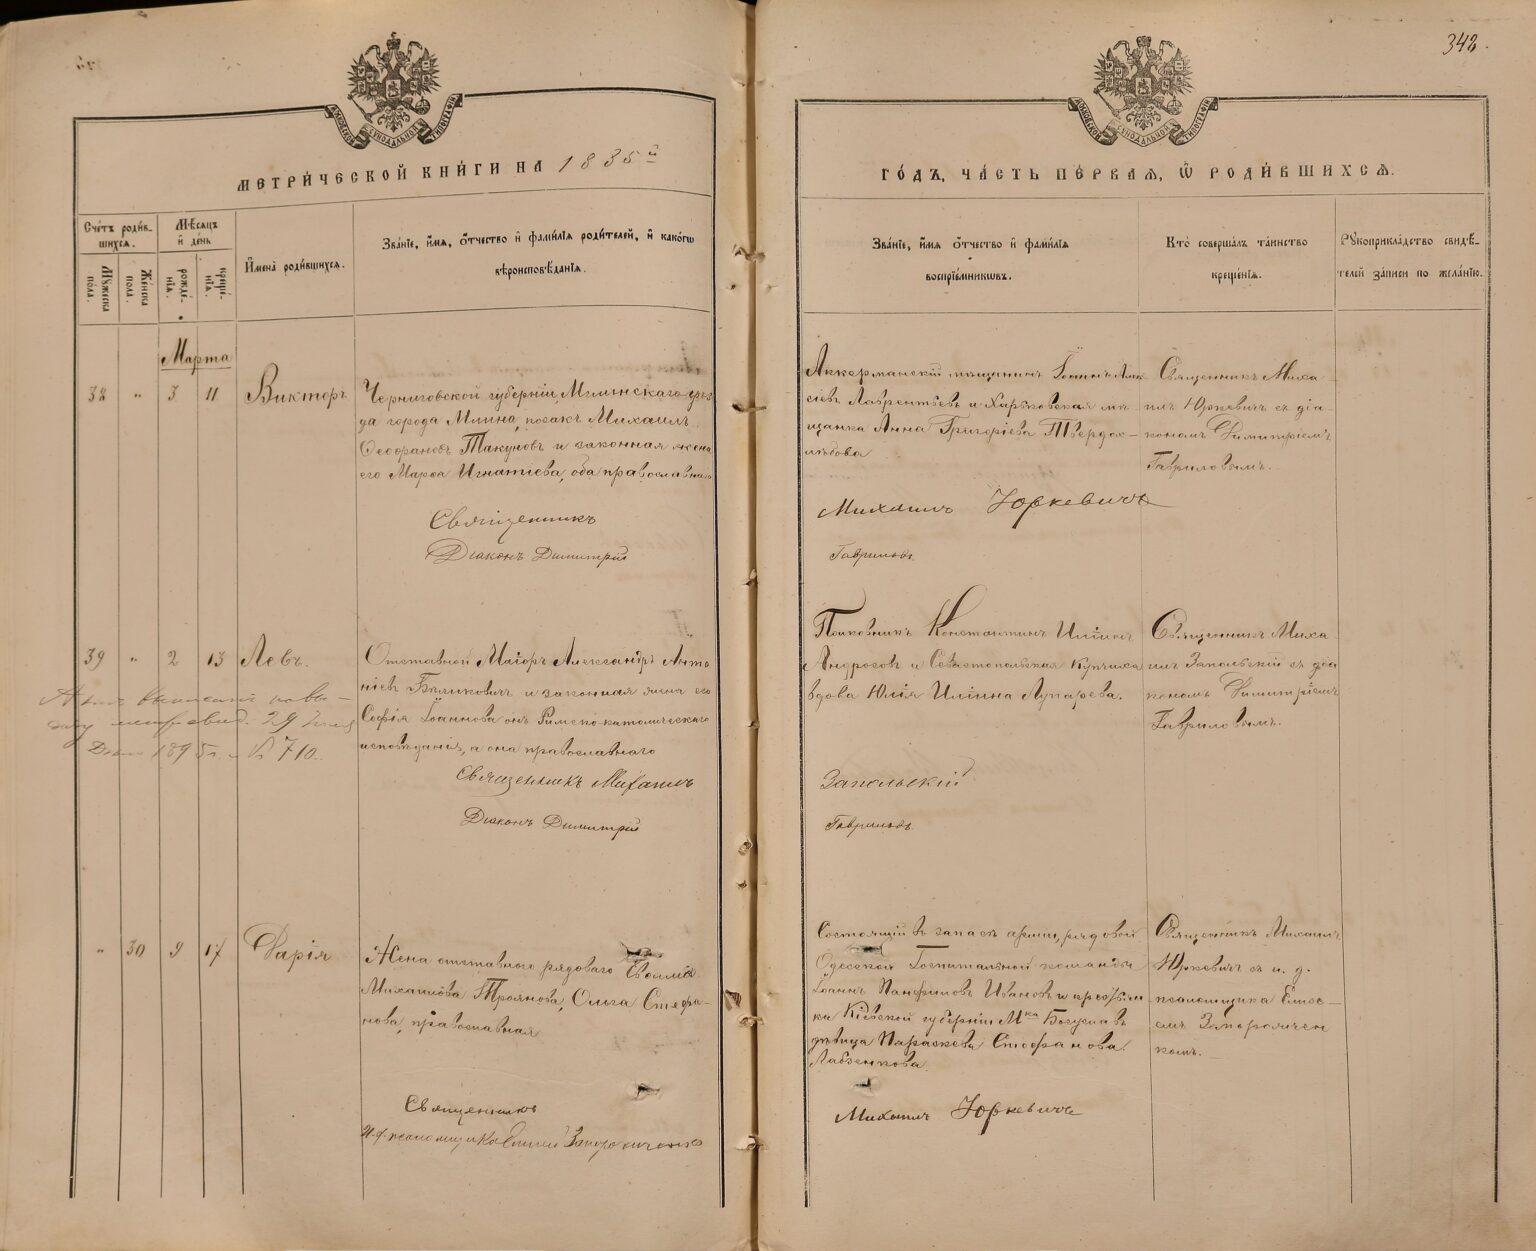 342.
МОСКОВСКОЙ СУНОДАЛЬНОЙ ТИПОГРАФІИ
МОСКОВСКОЙ СУНОДАЛЬНОЙ ТИПОГРАФІИ
МЕТРИ́ЧЕСКОЙ КНИ́ГИ НА 1835й
ГО́ДЪ, ЧА́СТЬ ПЕ́РВАѦ, Ѡ҆ РОДИ́ВШИХСѦ.
Сче́тъ роди́в-
шихсѧ.
Мꙋ́жеска пола.
Же́нска пола.
Мѣ́сѧцъ
и҆ де́нь
рожде́-
нїѧ.
креще́-
нїѧ.
И҆мена̀ роди́вшихсѧ.
Зва́нїе, и҆́мѧ, ѻ҆́тчество и҆ фами́лїѧ роди́телей, и҆ како́гѡ
вѣроисповѣ́данїѧ.
Зва́нїе, и҆́мѧ ѻ҆́тчество и҆ фами́лїѧ
воспрїе́мникѡвъ.
Кто̀ соверша́лъ та́инство
креще́нїѧ.
Рꙋкоприкла́дство свидѣ́-
телей за́писи по жела́нїю.
Марта
38 " 3 11 Викторъ
Черниговской губерніи, Мглинскаго уѣз-
да города Мглина, козакъ Михаилъ
Ѳеофановъ Такуновъ и законная жена
его Марѳа Игнатіева, оба православнаго
Священникъ
Діаконъ Димитрій
Аккерманскій мѣщанинъ Іоаннъ Алек-
сіевъ Лаврентьевъ и Харьковская мѣ-
щанка Анна Григоріева Твердох-
лѣбова
Михаилъ Юркевичъ
Гавриловъ.
Священникъ Миха-
илъ Юркевичъ съ діа-
кономъ Димитріемъ
Гавриловымъ.
39 " 2 13 Левъ.
Отставной Маіоръ Александръ Анто-
ніевъ и законная жена его
Софія Іоаннова онъ Римско-католическаго
исповѣданія, а она православнаго
Священникъ Михаилъ
Діаконъ Димитрій
29
1895 г. № 710.
Полковникъ Константинъ Иліинъ
Андросовъ и Севастопольская Купчиха
вдова Юлія Иліина Лупарева.
Запольскій
Гавриловъ.
Священникъ Миха-
илъ Запольскій съ діа-
кономъ Димитріемъ
Гавриловымъ.
" 30 9 17 Дарія
Жена отставнаго рядоваго Евѳимія
Михаилова Троянова, Ольга Стефа-
нова, православная
Священникъ
И. д. псаломщика Елисей Запорожченко
Состоящій въ запасѣ арміи, рядовой
Одесской Госпитальной команды
Іоаннъ Панфиловъ Ивановъ и крестьян-
ка Кіевской губерніи Мка Богуславъ
дѣвица Параскева Стефанова
Лавзенкова
Михаилъ Юркевичъ
Священникъ Михаилъ
Юркевичъ съ и. д.
псаломщика Елисе-
емъ Запорожчен-
комъ.